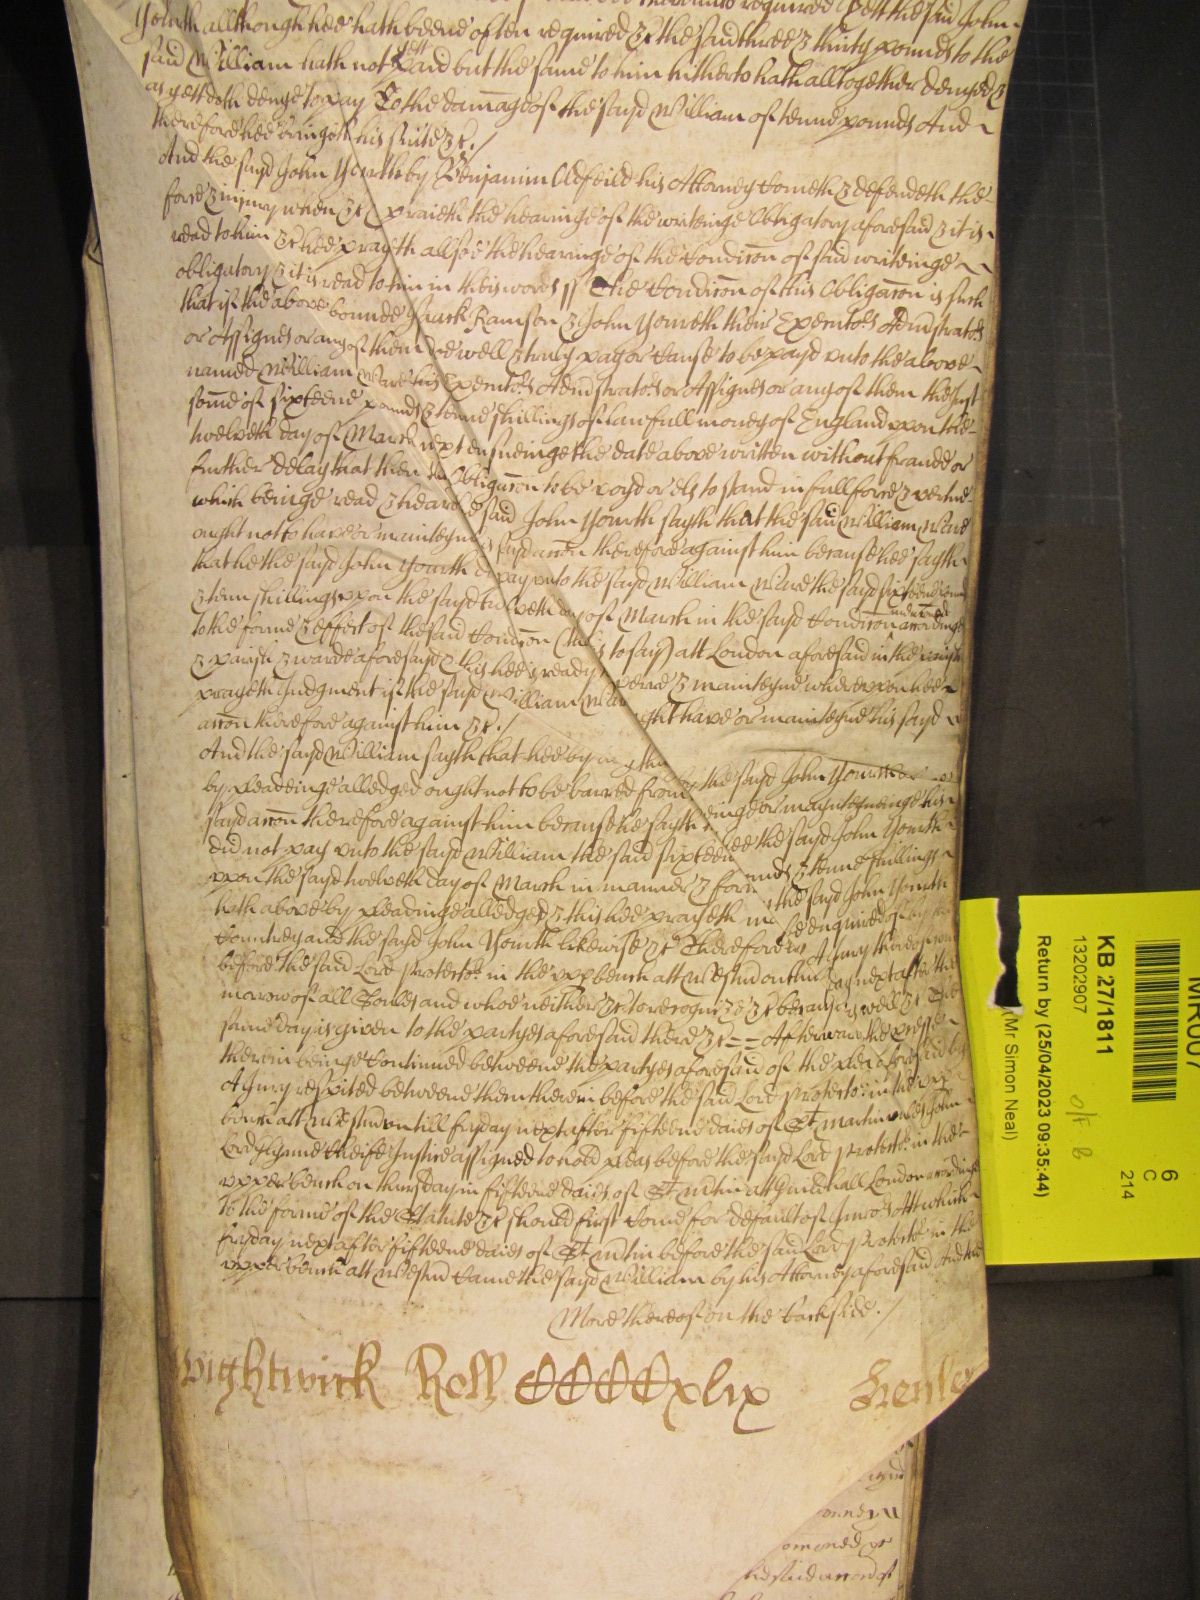 thereunto required Yett the said John
Yourth allthough hee hath beene often required &c the said three & thirty pounds to the
said William hath not yett paid but the same to him hitherto hath alltogether denyed &
as yett doth denye to pay To the damage of the sayd William of tenne pounds And
therefore hee bringeth his suite &c./
And the sayd John Yourth by Benjamin Oldfeild his Attorney Cometh & defendeth the
force & iniury when &c & praieth the hearinge of the writeinge Obligatory aforesaid & it is
read to him &c hee prayeth allsoe the hearinge of the Condic̄on of said writeinge
obligatory & it is read to him in theis words ss The Condic̄on of this Obligac̄on is such
that if the above bounde Isaack Ramson & John Yourth their Executors Administrators
or Assignes or any of them doe well & truly pay or Cause to be payd unto the above
named William Ware his Executors Administrators or Assignes or any of them the just
som̄e of sixteene pounds & tenne shillings of lawfull money of England upon the
twelveth day of March next ensueinge the date above written without fraude or
further delay that then the Obligac̄on to be voyd or els to stand in full force & vertue
which beinge read & heard the said John Yourth sayth that the said William Ware
ought not to have or mainteyne his sayd acc̄on therefore against him because hee sayth
that he the sayd John Yourth did pay unto the sayd William Ware the sayd sixteene pounds
& tenn shillings upon the sayd twelveth day of March in the sayd Condic̄on menc̄oned accordinge
to the forme & effect of the said Condic̄on (that is to say) att London aforesaid in the parish
& parish & warde aforesayd & this hee is ready to averre & mainteyne whereupon hee
prayeth Judgment if the sayd William Ware ought have or mainteyne his sayd
acc̄on therefore against him &c./
And the sayd William sayth that hee by any thing by the sayd John Yourth above
by pleadeinge alledged ought not to be barred from haveinge or maynteyneinge his
sayd acc̄on therefore against him because he sayth that hee the sayd John Yourth
did not pay unto the sayd William the said sixteene pounds & tenne shillings
upon the sayd twelveth day of March in manner & forme as the sayd John Yourth
hath above by pleadinge alledged & this hee prayeth may be enquired of by the
Countrey and the sayd John Yourth likewise &c Therefore lett A Jury thereupon come
before the said Lord Protector in the upper bench att Westm̄ on the day next after the
morrow of all Soules and whoe neither &c to recognize &c because as well &c The
same day is given to the partyes aforesaid there &c == Afterwards the processe
therein beinge Continued betweene the partyes aforesaid of the plea aforesaid by
A Jury respited betweene them therein before the said Lord Protector in the upper
bench att Westm̄ untill fryday next after fifteene daies of St Martin unles John
Lord Glynne Cheife Justice assigned to hold pleas before the sayd Lord Protector in the
upper bench on thursday in fifteene daies of St Martin att Guildhall London accordinge
to the forme of the Statute &c should first Come for default of Jurors Att which
fryday next after fifteene daies of St Martin before the said Lord Protector in the
upper bench att Westm̄ Came the sayd William by his Attorney aforesaid And the
More thereof on the backside./
Wightwick Roll CCCCxlix Henley
MR007
6
C
214
KB 27/1811
13202907
Return by (25/04/2023 09:35:44)
(Mr Simon Neal)